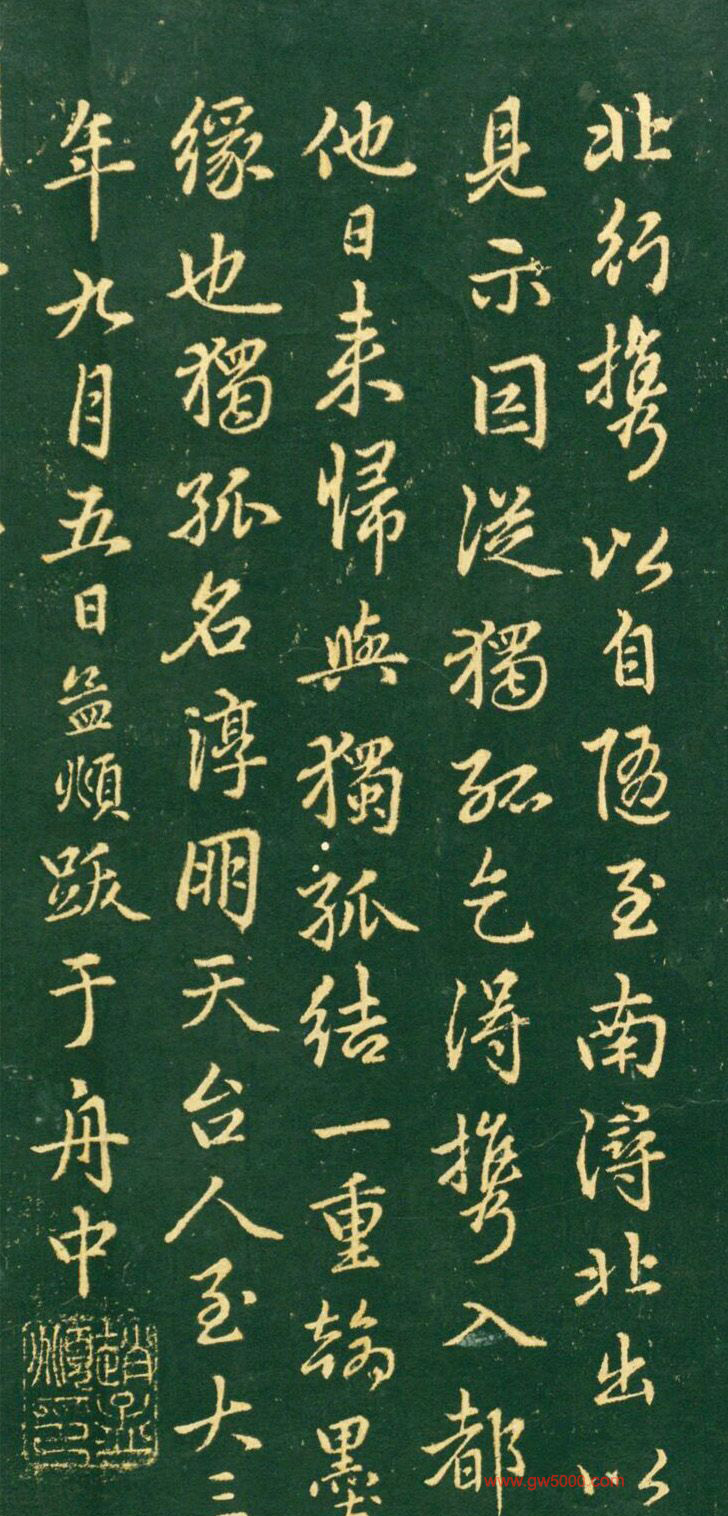 北行携以自随至南浔北出以
見示因從獨孤乞得携入都
他日来歸與獨孤結一重翰墨
緣也獨孤名淳朋天台人至大三
年九月五日孟頫跋于舟中
趙孟頫印
www.gw5000.com